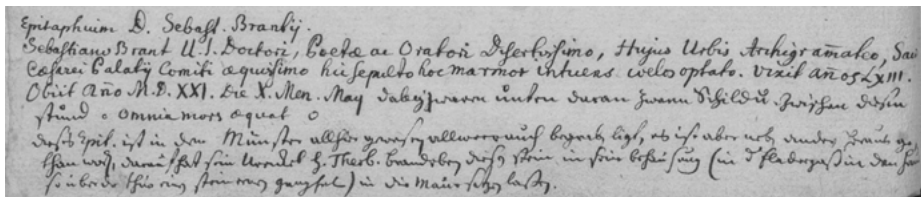 Epitaphium D. Sebast. Brantij.
Sebastiano Brant U. I. Doctori, Poetæ ac Oratori Disertissimo, Hujus Urbis Archigram̄ateo, Sac
Cæsarei Palatij Comiti æquissimo hic sepulto hoc marmor intuens velos optato. Vixit Añ os LXIII.
Obiit Año M. D. XXI. Die X. Men. May dabey waren unten daran zween Schildt u. zwischen diesen
stund o omnia mors æquat o
dieses Epit. ist in dem Münster allhie gewesen allwo er auch begraben ligt, es ist aber nebs andern heraus ge
than worden, darauf hat sein Urenckel H. Theod. diesen stein in sein behausung (in d. in den
so über der thür ein steinernen) in die Maur setzen lassen.